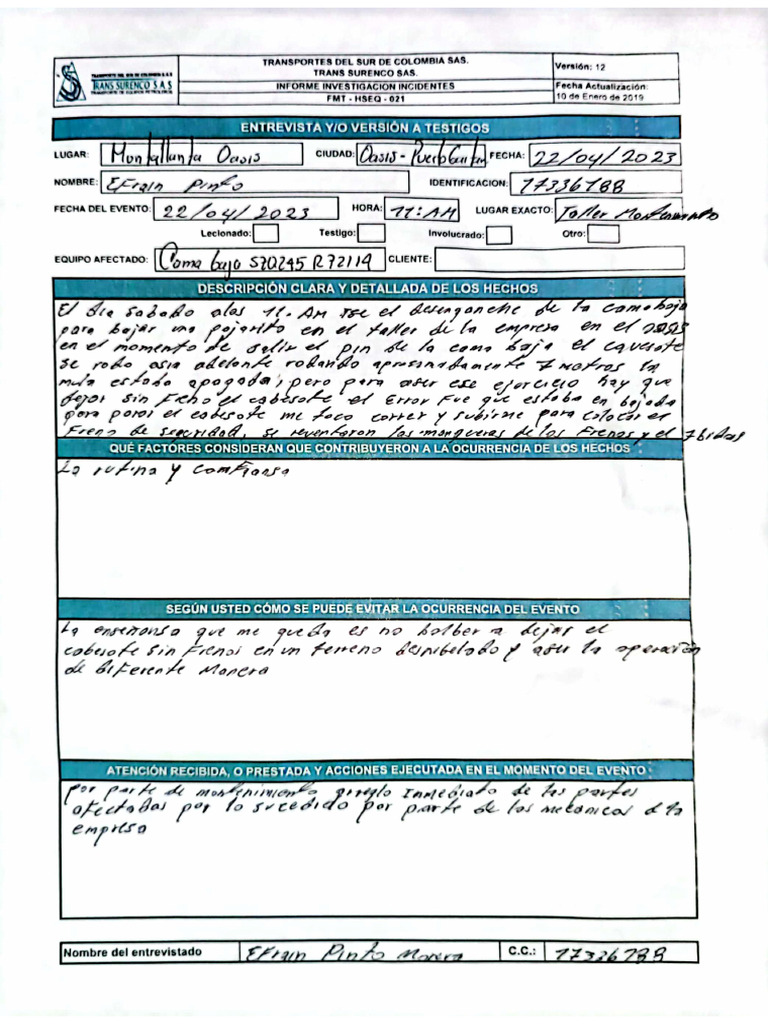 TRANSPORTES DEL SUR DE COLOMBIA SAS.
TRANS SURENCO SAS.
INFORME INVESTIGACION INCIDENTES
FMT - HSEQ - 021
Versión: 12
Fecha Actualización:
10 de Enero de 2019
TRANSPORTE DEL SUR DE COLOMBIA S.A.S
TRANS SURENCO S.A.S
ENTREVISTA Y/O VERSIÓN A TESTIGOS
LUGAR: Montallanta Oasis CIUDAD: Oasis - Puerto Gaitan FECHA: 22/04/2023
NOMBRE: EFrain Pinto IDENTIFICACION: 17336788
FECHA DEL EVENTO: 22/04/2023 HORA: 11:AM LUGAR EXACTO: Taller
Lecionado: Testigo: Involucrado: Otro:
EQUIPO AFECTADO: Cama baja S20245 R72119 CLIENTE:
DESCRIPCIÓN CLARA Y DETALLADA DE LOS HECHOS
El dia sabado alas 11. AM el desenganche de la camabaja
para bajar una pajarito en el taller de la empresa en el
en el momento de salir el pin de la cama baja el
se rodo asia adelante rodando aproximadamente 7 metros la
mula estaba apagada, pero para aser ese ejercicio hay que
dejar sin Freno el cabesote el Error Fue que estaba en bajada
para parar el cabesote me toco correr y subirme para colocar el
Freno de seguridad, se reventaron las mangueras de los Frenos y el
QUÉ FACTORES CONSIDERAN QUE CONTRIBUYERON A LA OCURRENCIA DE LOS HECHOS
La rutina y comfiansa
SEGÚN USTED CÓMO SE PUEDE EVITAR LA OCURRENCIA DEL EVENTO
La enseñansa que me queda es no bolber a dejar el
cabesote sin Frenos en un terreno desnibelado y aser la operación
de diFerente Manera
ATENCIÓN RECIBIDA, O PRESTADA Y ACCIONES EJECUTADA EN EL MOMENTO DEL EVENTO
por parte de mantenimiento arreglo inmediato de las partes
afectadas por lo sucedido por parte de los mecanicos d la
empresa
Nombre del entrevistado EFrain Pinto Morera C.C.: 17336788